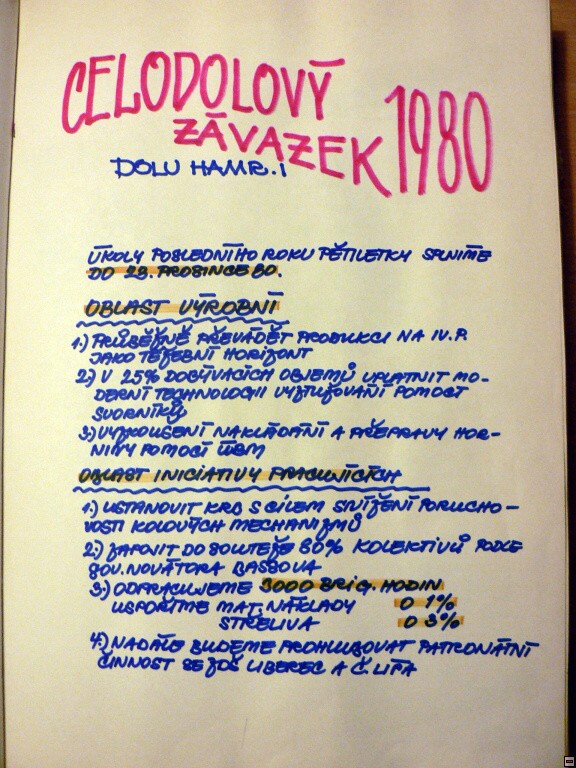 CELODOLOVÝ
ZÁVAZEK 1980
DOLU HAMR. I
ÚKOLY POSLEDNÍHO ROKU PĚTILETKY SPLNÍME
DO 23. PROSINCE 80.
OBLAST VÝROBNÍ
1.) PRŮBĚŽNĚ PŘEVÁDĚT PRODUKCI NA IV. P.
JAKO TĚŽEBNÍ HORIZONT
2.) V 25% DOBÝVACÍCH OBJEMŮ UPLATNIT MO-
DERNÍ TECHNOLOGII VYZTUŽOVÁNÍ POMOCÍ
SVORNÍKŮ
3.) VYZKOUŠENÍ NAKLÁDÁNÍ A PŘEPRAVY HOR-
NINY POMOCÍ
OBLAST INICIATIVY PRACUJÍCÍCH
1.) USTANOVIT KRB S CÍLEM SNÍŽENÍ PORUCHO-
VOSTI KOLOVÝCH MECHANIZMŮ
2.) ZAPOJIT DO SOUTĚŽE 80% KOLEKTIVŮ PODLE
SOV. NOVÁTORA BASSOVA
3.) ODPRACUJEME 3000 BRIG. HODIN
USPOŘÍME MAT. NÁKLADY O 1%
STŘELIVA O 3%
4.) NADÁLE BUDEME PROHLUBOVAT PATRONÁTNÍ
ČINNOST SE ZDŠ LIBEREC A Č. LÍPA